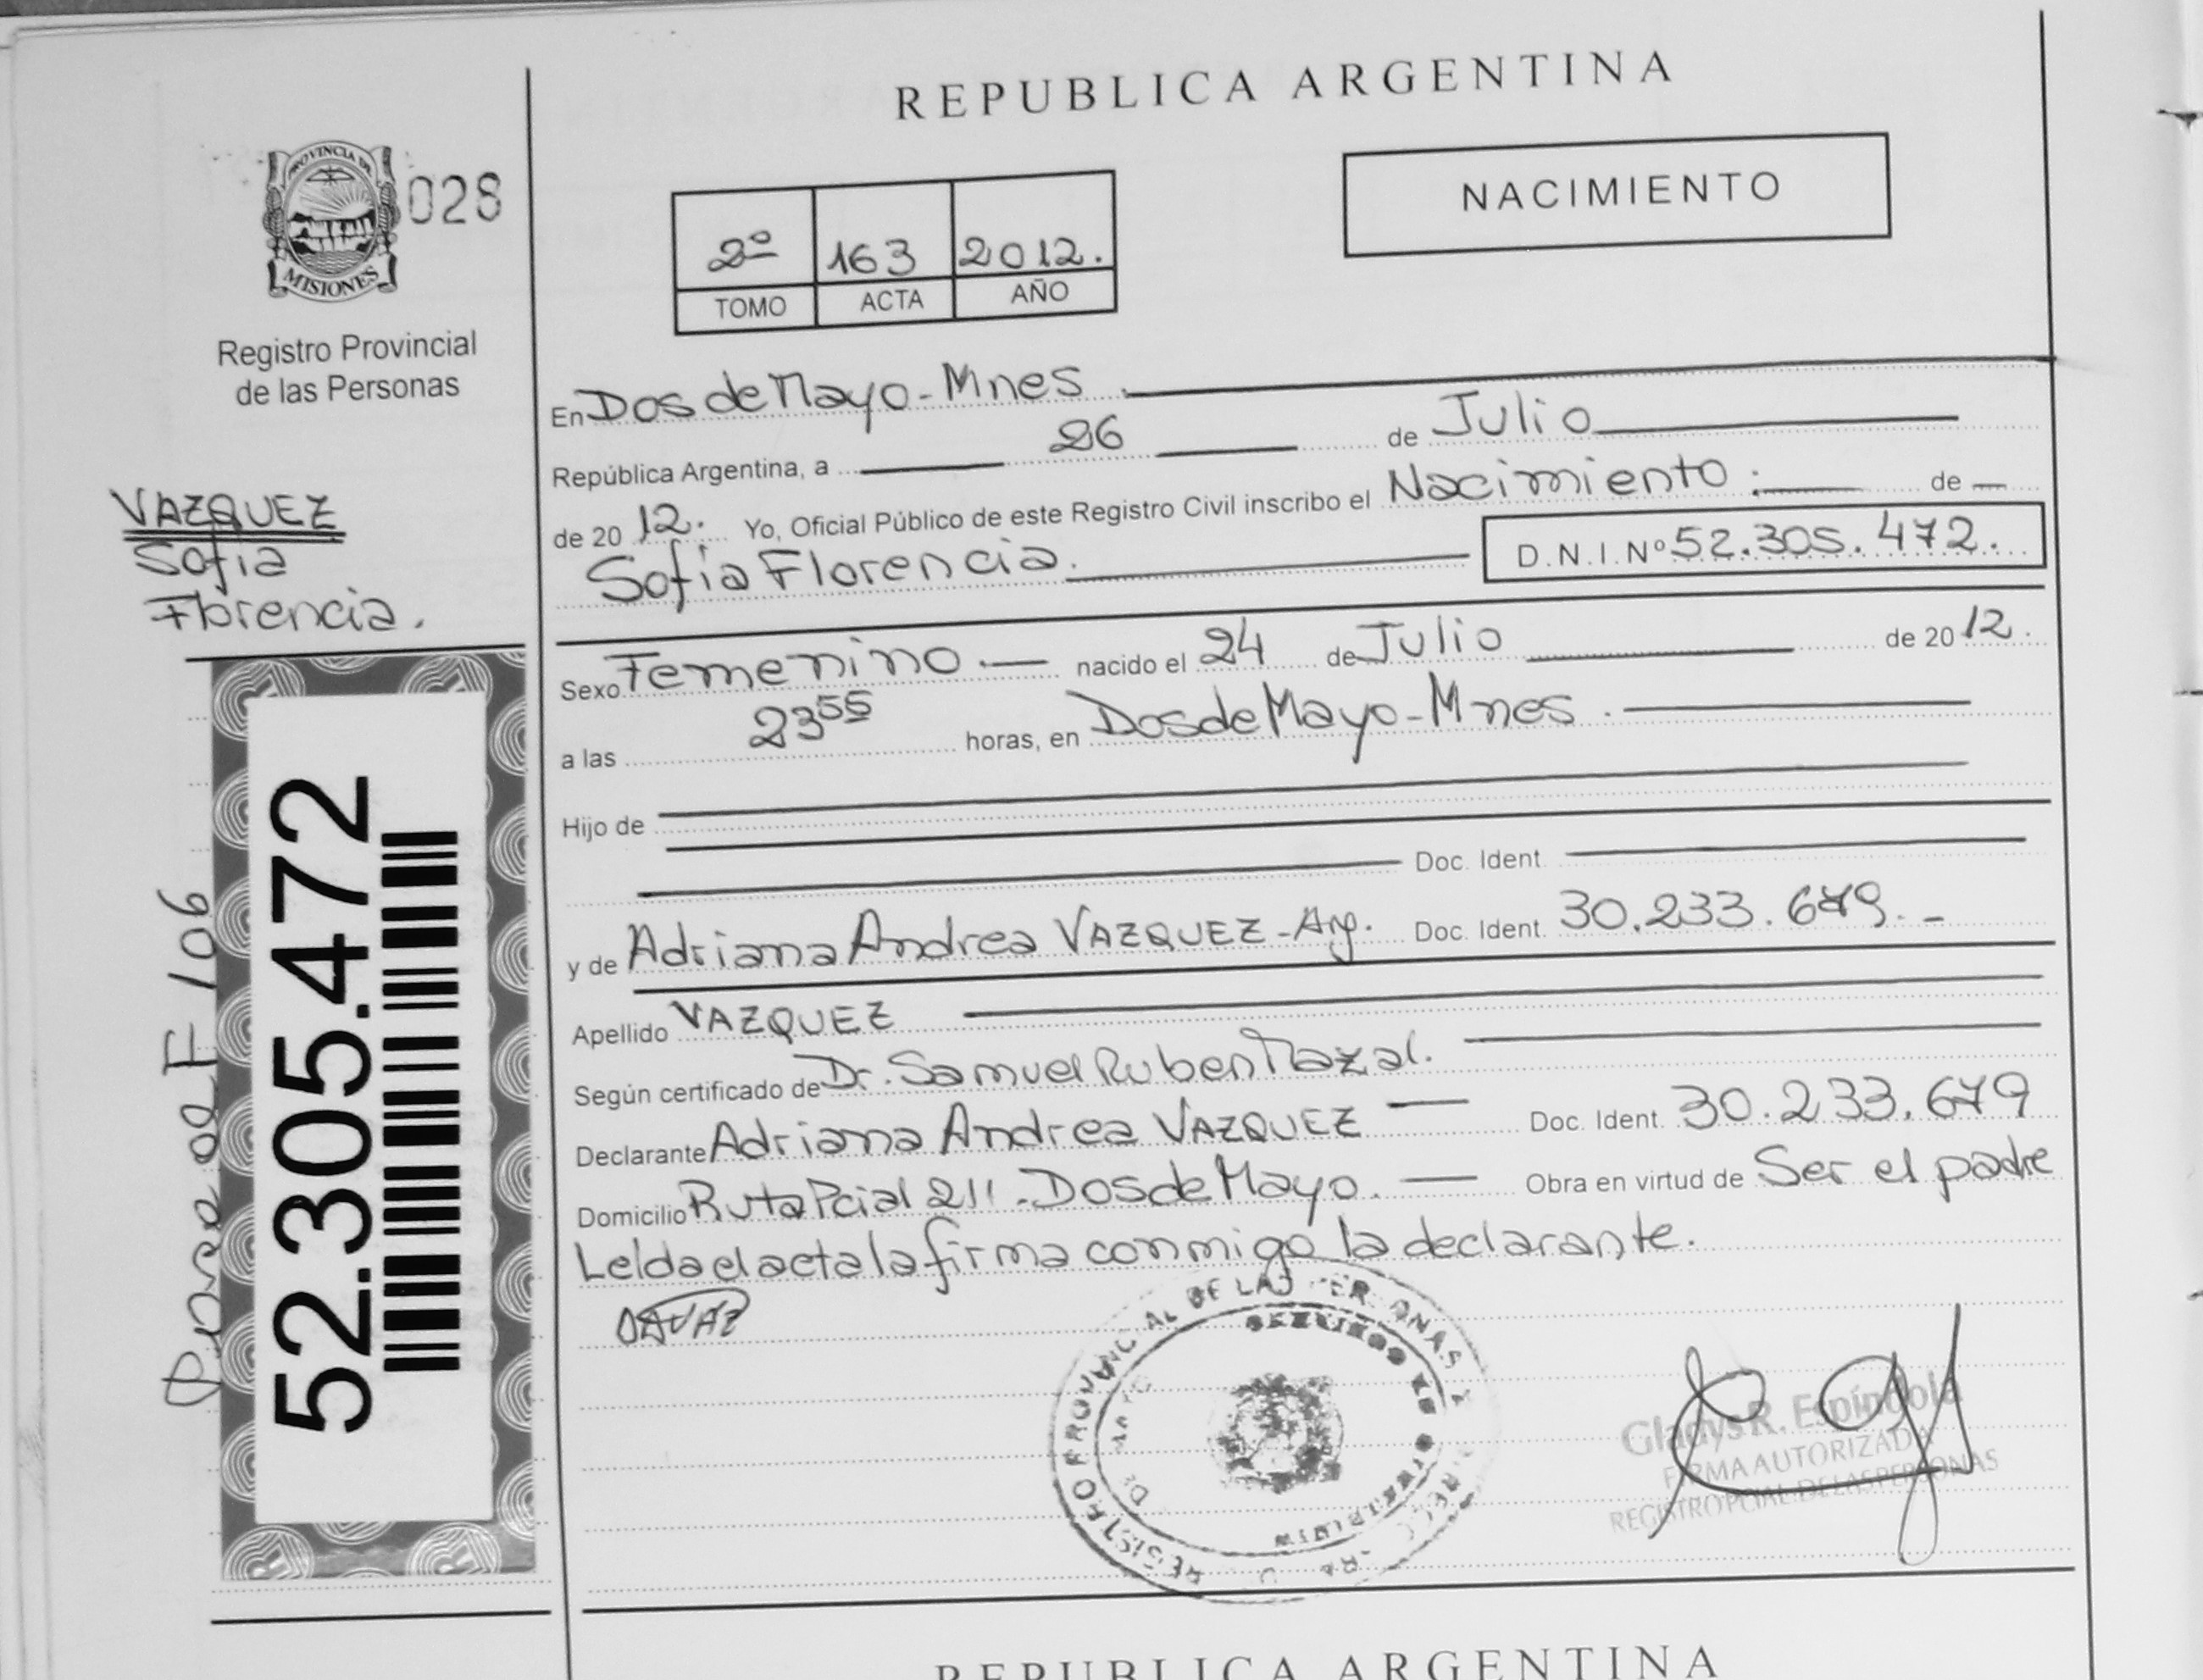 REPUBLICA ARGENTINA
NACIMIENTO
PROVINCIA DE
MISIONES
028
Registro Provincial
de las Personas
2º 163 2012.
TOMO ACTA AÑO
VAZQUEZ
Sofia
Florencia.
52.305.472
F 106
En Dos de Mayo - Mnes
República Argentina, a 26 de Julio
de 20 12. Yo, Oficial Público de este Registro Civil inscribo el Nacimiento: de
Sofia Florencia. D.N.I.Nº 52.305.472.
Sexo Femenino nacido el 24 de Julio de 20 12.
a las 23 55 horas, en Dos de Mayo - Mnes.
Hijo de
Doc. Ident.
y de Adriana Andrea VAZQUEZ - Arg. Doc. Ident. 30.233.679.-
Apellido VAZQUEZ
Según certificado de Dr. Samuel Ruben Mazal.
Declarante Adriana Andrea VAZQUEZ Doc. Ident. 30.233.679
Domicilio Ruta Pcial 211. Dos de Mayo. Obra en virtud de Ser el padre
Leida el acta la firma conmigo la declarante.
REGISTRO PROVINCIAL DE LAS PERSONAS
Gladys R. Espíndola
FIRMA AUTORIZADA
REGISTRO PCIAL. DE LAS PERSONAS
REPUBLICA ARGENTINA